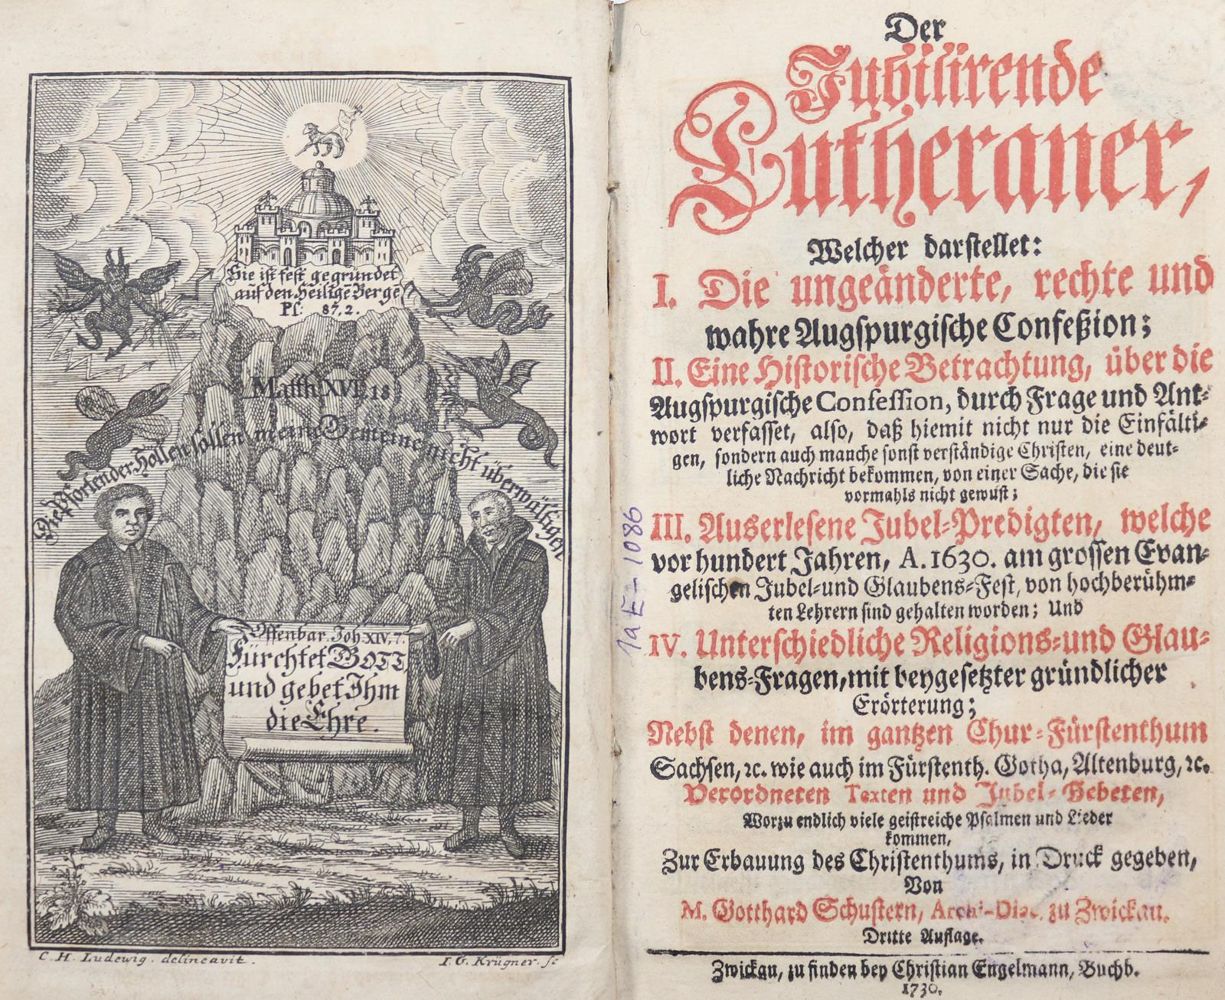 Sie ist fest gegründet
auf den Heilige Berge
Ps: 87. 2.
Matth. XVI. 18
Die Pforten der Höllen sollen meine Gemeine nicht überwältigen
Offenbar. Joh. XIV. 7.
Fürchtet GOTT
und gebet Ihm
die Ehre.
C. H. Ludewig. delineavit.
I. G. Krügner. sc
Der
Jubilirende
Lutheraner,
Welcher darstellet:
I. Die ungeänderte, rechte und
wahre Augspurgische Confeßion;
II. Eine Historische Betrachtung, über die
Augspurgische Confession, durch Frage und Ant-
wort verfasset, also, daß hiemit nicht nur die Einfälti-
gen, sondern auch manche sonst verständige Christen, eine deut-
liche Nachricht bekommen, von einer Sache, die sie
vormahls nicht gewust;
III. Auserlesene Jubel-Predigten, welche
vor hundert Jahren, A. 1630. am grossen Evan-
gelischen Jubel-und Glaubens-Fest, von hochberühm-
ten Lehrern sind gehalten worden; Und
IV. Unterschiedliche Religions-und Glau-
bens-Fragen, mit beygesetzter gründlicher
Erörterung;
Nebst denen, im gantzen Chur-Fürstenthum
Sachsen, ꝛc. wie auch im Fürstenth. Gotha, Altenburg, ꝛc.
Verordneten Texten und Jubel-Gebeten,
Worzu endlich viele geistreiche Psalmen und Lieder
kommen,
Zur Erbauung des Christenthums, in Druck gegeben,
Von
M. Gotthard Schustern, Archi-Diac. zu Zwickau.
Dritte Auflage.
Zwickau, zu finden bey Christian Engelmann, Buchb.
1730.
1a E - 1086